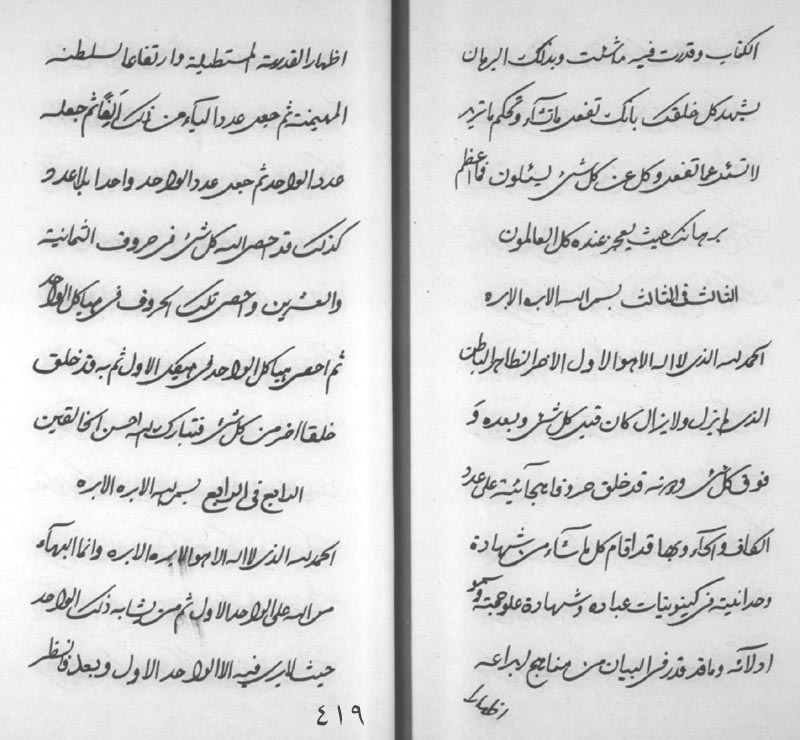 الكتاب وقدرت فيه ماشئت وبذلك البرهان
ليشهد كل خلقك بانك تفعل ماتشآء وتحكم ماتريد
لاتسئل عما تفعل وكل عن كل شئ ليسئلون فما اعظم
برهانك حيث يعجز عنده كل العالمون
الثالث فى الثالث بسم الله الابده الابده
الحمد لله الذى لا اله الا هو الاول الاخر الظاهر الباطن
الذى لم يزل ولا يزال كان قبل كل شئ وبعده و
فوق كل شئ ودونه قد خلق حروفا هجآئية على عدد
الكاف والحآء وبها قد اقام كل ماشآء من شهادة
وحدانيته فى كينونيات عباده وشهادة علو حجته وسمو
ادلآئه وماقد قدر فى البيان من مناهج ابداعه
اظهار
اظهار القدرة المستطيلة وارتفاع السلطنة
المهيمنة ثم جعل عدد اليآء من ذلك ايقا ثم جعله
عدد الواحد ثم جعل عدد الواحد واحدا بلاعدد
كذلك قد احصى الله كل شئ فى حروف الثمانية
والعشرين واحصى تلك الحروف فى هياكل الواحد
ثم احصى هياكل الواحد فى هيكل الاول ثم به قد خلق
خلقا اخر من كل شئ فتبارك الله احسن الخالقين
الرابع فى الرابع بسم الله الابده الابده
الحمد لله الذى لا اله الا هو الابده الابده وانما البهآء
من الله على الواحد الاول ثم من يشابه ذلك الواحد
حيث لايرى فيه الا الواحد الاول وبعد فانظر
٤١٩